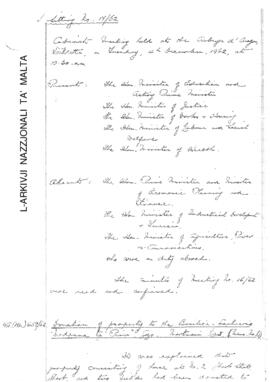 Sitting No. 14/62
Cabinet Meeting held at the Auberge d'Aragon,
Valletta, on Tuesday, 4th December, 1962, at
10.30 am
Present: The Hon. Minister of Education and
Acting Prime Minister
The Hon. Minister of Justice
The Hon. Minister of Works & Housing
The Hon. Minister of Labour and Social
Welfare
The Hon. Minister of Health.
Absent: The Hon. Prime Minister and Minister
of Economic Planning and
Finance.
The Hon. Minister of Industrial Development
& Tourism
The Hon. Minister of Agriculture, Power
& Communications
who were on duty abroad.
The minutes of Meeting No.
were read and confirmed.
Donation of property to the
It was explained that
property consisting of house at No. 2
and two fields had been donated to
L-ARKIVJI NAZZJONALI TA' MALTA